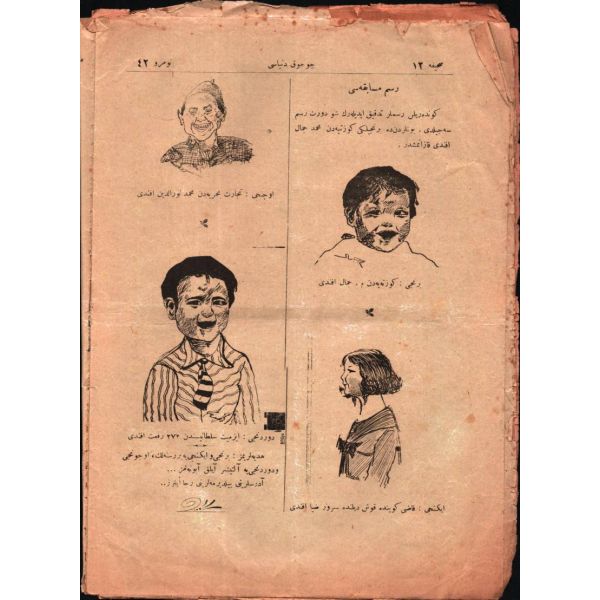 صحیفه ١٢
چوجوق دنیاسی
نومرو ٤٢
رسم مسابقه‌سی
کوندەریلن رسملر تدقیق ایدیله‌رك شو دورت رسم
سه‌چیلدی . بونلردن‌ده برنجیلکی کوزتپه‌دن محمد جمال
افندی قازانمشدر .
برنجی : کوزتپه‌دن م . جمال افندی
ایکنجی : قاضی کوینده قوش دیلنده سرور ضیا افندی
اوچنجی : تجارت بحریه‌دن محمد نورالدین افندی
دوردنجی : ازمیت سلطانیسندن ٢٧٢ رفعت افندی
هدیه‌لریمز : برنجی و ایکنجی‌یه بررسنه‌لك ، اوچونجی
و دوردنجی‌یه آلتیشر آیلق آبونه‌مز ...
آدرسلرینی بیلدیرمه‌لرینی رجا ایدرز ..